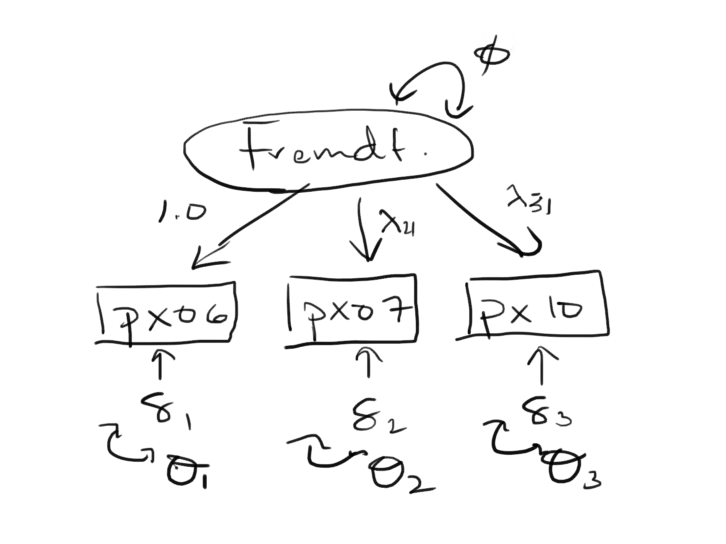 ϕ
Fremdf.
1.0 λ21 λ31
px06 px07 px10
δ1 δ2 δ3
θ1 θ2 θ3